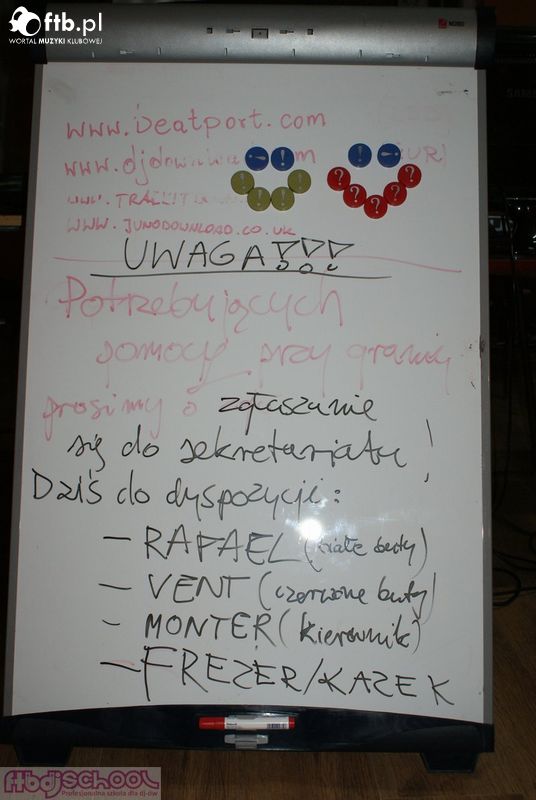 ftb.pl
WORTAL MUZYKI KLUBOWEJ
www.beatport.com
www.
www.
WWW. JUNODOWNLOAD.CO.UK
UWAGA!!!
Potrzebujących
pomocy przy graniu
prosimy o zgłaszanie
się do sekretariatu!
Dziś do dyspozycji:
- RAFAEL (białe buty)
- VENT (czerwone buty)
- MONTER (kierownik)
- FREZER/KAZEK
ftbdjschool
Profesjonalna szkoła dla dj-ów